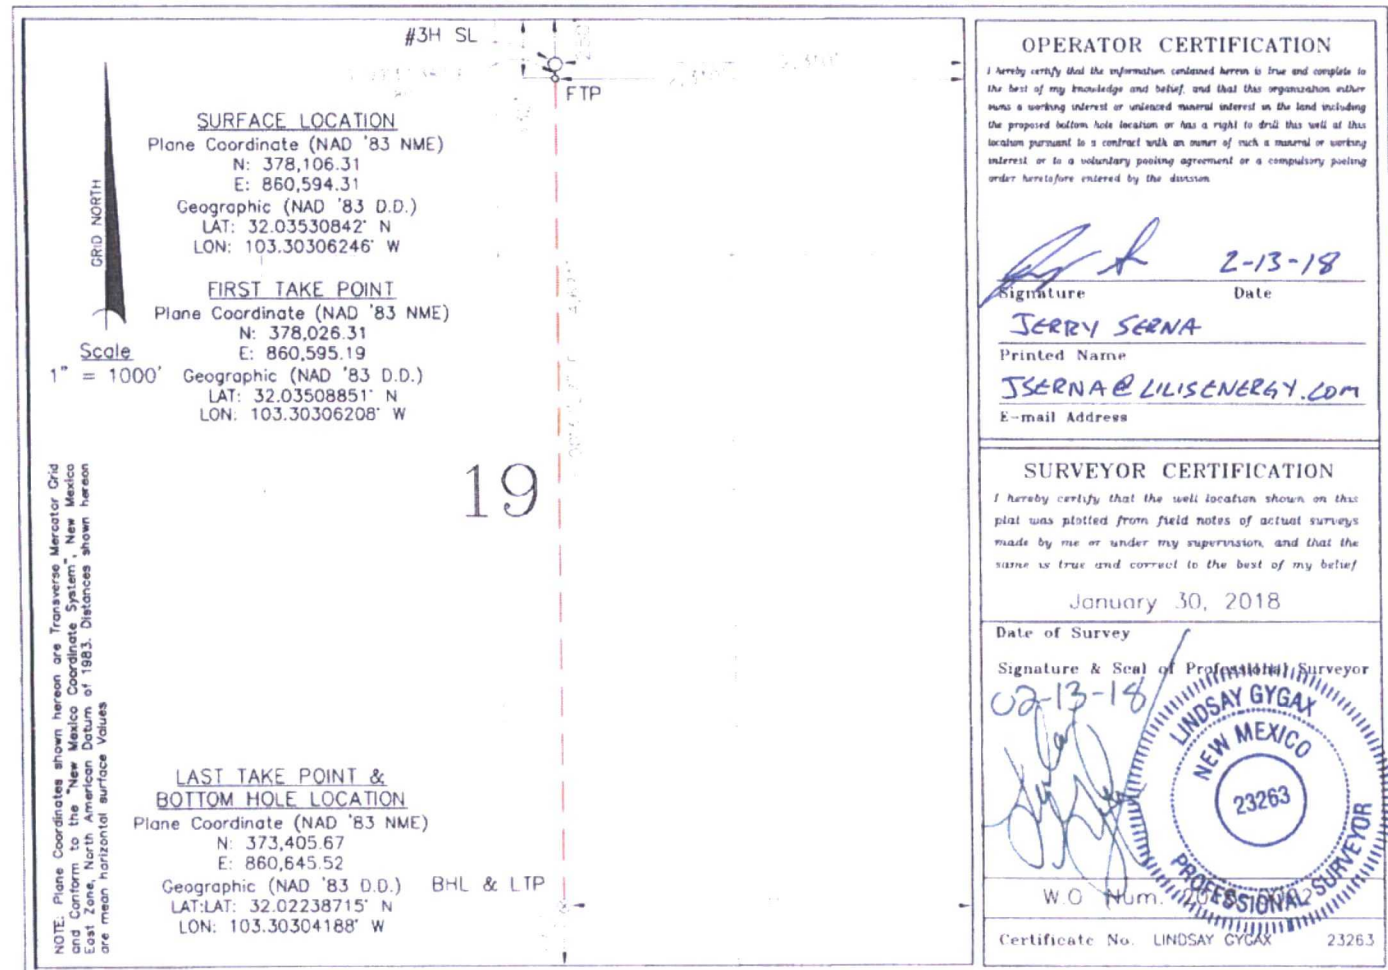 #3H SL
FTP
SURFACE LOCATION
Plane Coordinate (NAD '83 NME)
N: 378,106.31
E: 860,594.31
Geographic (NAD '83 D.D.)
LAT: 32.03530842° N
LON: 103.30306246° W
FIRST TAKE POINT
Plane Coordinate (NAD '83 NME)
N: 378,026.31
E: 860,595.19
Geographic (NAD '83 D.D.)
LAT: 32.03508851° N
LON: 103.30306208° W
GRID NORTH
Scale
1" = 1000'
19
NOTE: Plane Coordinates shown hereon are Transverse Mercator Grid
and Conform to the "New Mexico Coordinate System", New Mexico
East Zone, North American Datum of 1983. Distances shown hereon
are mean horizontal surface values
LAST TAKE POINT &
BOTTOM HOLE LOCATION
Plane Coordinate (NAD '83 NME)
N: 373,405.67
E: 860,645.52
Geographic (NAD '83 D.D.)
LAT:LAT: 32.02238715° N
LON: 103.30304188° W
BHL & LTP
OPERATOR CERTIFICATION
I hereby certify that the information contained herein is true and complete to
the best of my knowledge and belief, and that this organization either
owns a working interest or unleased mineral interest in the land including
the proposed bottom hole location or has a right to drill this well at this
location pursuant to a contract with an owner of such a mineral or working
interest, or to a voluntary pooling agreement or a compulsory pooling
order heretofore entered by the division
2-13-18
Signature Date
JERRY SERNA
Printed Name
JSERNA@LILISENERGY.COM
E-mail Address
SURVEYOR CERTIFICATION
I hereby certify that the well location shown on this
plat was plotted from field notes of actual surveys
made by me or under my supervision, and that the
same is true and correct to the best of my belief
January 30, 2018
Date of Survey
Signature & Seal of Professional Surveyor
02-13-18
LINDSAY GYGAX
NEW MEXICO
23263
PROFESSIONAL SURVEYOR
W.O Num.
Certificate No. LINDSAY GYGAX 23263